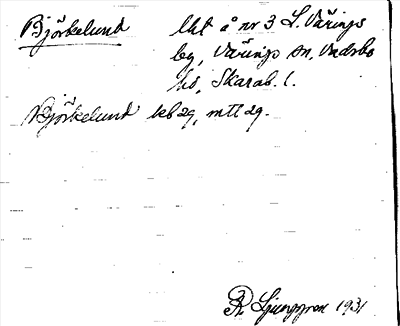 Björkelund lht å nr 3 L. Värings
by, Värings sn, Vadsbo
hd, Skarab. l.
Björkelund kb 29, mtl 29.
R Ljunggren 1931